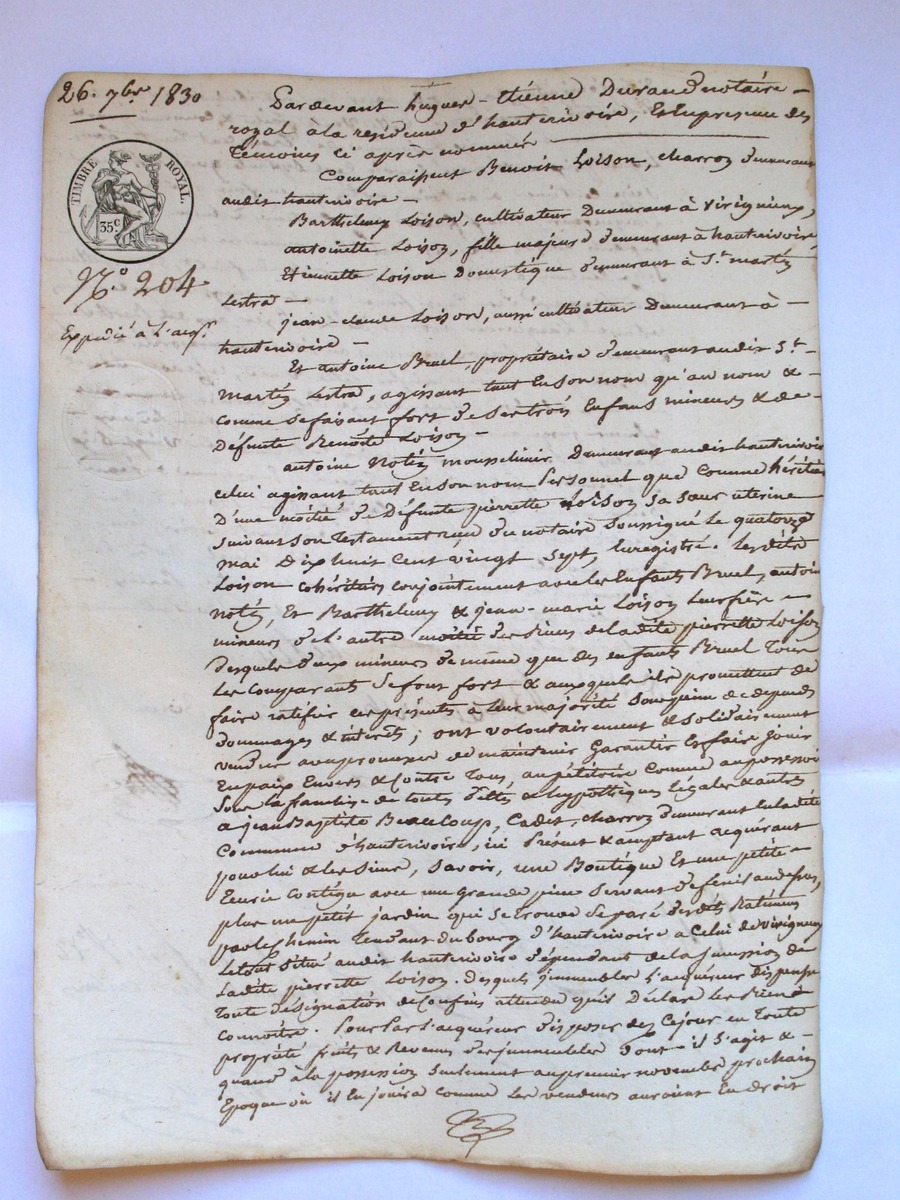 26. 7bre 1830
TIMBRE ROYAL.
35c
N.o 204
Expédié à L'acqr
Pardevant hugues-Etienne Durand notaire
royal à la residence d'hauterivoire, Et En presence des
Témoins ci après nommés
Comparaissent Benoit Loison, charron demeurant
audit hauterivoire
Barthelemy Loison, cultivateur Demeurant à Virigneux,
antoinette Loison, fille majeure demeurant à hauterivoire,
Etiennette Loison Domestique demeurant à St. martin
Lestra
jean-claude Loison, aussi cultivateur Demeurant à
hauterivoire
Et antoine Bruel, propriétaire demeurant audit St.
martin Lestra, agissant tant En son nom qu'au nom &
comme se faisant fort de ses trois Enfans mineurs & de
Défunte Benoite Loison
antoine Notin mousselinier Demeurant audit hauterivoire
celui agissant tant En son nom Personnel que comme héritier
D'une moitié de Défunte pierrette Loison sa sœur uterine
suivant son Testament reçu du notaire soussigné Le quatorze
mai Dix huit cent vingt sept, Enregistré. Lesdits
Loison cohéritiers conjointement avec les Enfants Bruel, antoine
notin, Et Barthelemy & jean-marie Loison Leur frère
mineurs de L'autre moitié des biens de ladite pierrette Loison
desquels deux mineurs de même que des enfants Bruel Tous
Les comparants se font fort & auxquels ils promettent de
faire ratifier ces présentes à leur majorité sous peine de depends
dommages & intérets; ont volontairement & solidairement
vendu avec promesse de maintenir Garantir Et faire jouir
En paix Envers & Contre Tous, au pétitoire comme au possessoire
sous la franchise de toutes dettes & hypothèques légales & autres
a jean Baptiste Beaucoup, Cadet, charron demeurant En ladite
Commune d'hauterivoire, ici Présent & acceptant acquérant
pour lui & les siens, savoir, une Boutique Et une petite
Ecurie contigue avec une grande pièce servant de fenil au dessus,
plus un petit jardin qui se trouve separé desdits Batiments
par le chemin Tendant du bourg d'hauterivoire a Celui de Virigneux
Le tout situé audit hauterivoire dépendant de la succession de
Ladite pierrette Loison. desquels immeubles L'acquéreur dispense
Toute désignation de confins attendu qu'il Déclare Les bien
connoitre. Pour Par L'acquéreur disposer dez ce jour en Toute
propriété fruits & Revenus des immeubles dont il s'agit &
quand à la possession seulement au premier novembre prochain
Epoque où il En jouira comme les vendeurs auroient En droit